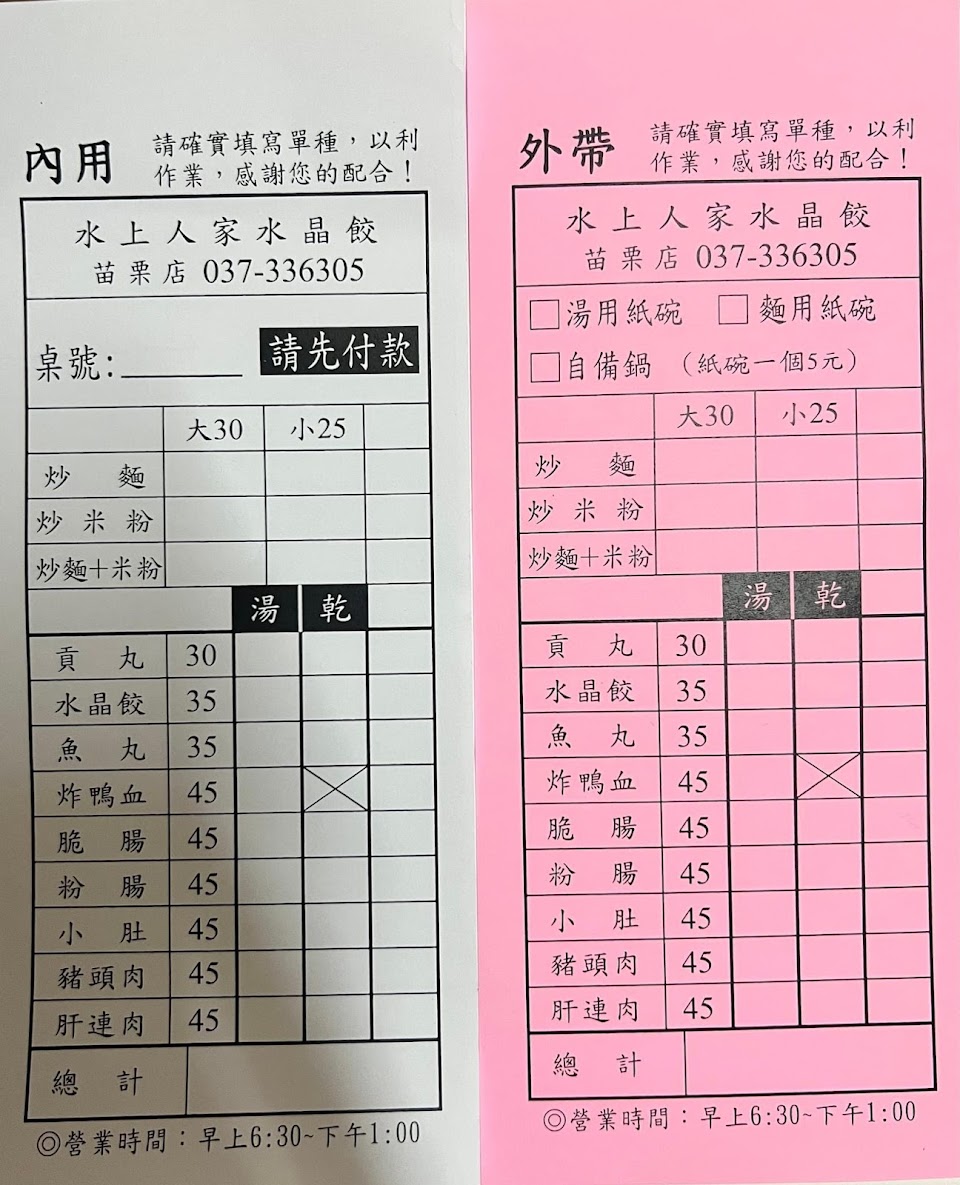 內用
請確實填寫單種，以利
作業，感謝您的配合！
水上人家水晶餃
苗栗店 037-336305
桌號:________ 請先付款
大30 小25
炒麵
炒米粉
炒麵+米粉
湯 乾
貢丸 30
水晶餃 35
魚丸 35
炸鴨血 45
脆腸 45
粉腸 45
小肚 45
豬頭肉 45
肝連肉 45
總計
◎營業時間：早上6:30~下午1:00
外帶
請確實填寫單種，以利
作業，感謝您的配合！
水上人家水晶餃
苗栗店 037-336305
□湯用紙碗 □麵用紙碗
□自備鍋 （紙碗一個5元）
大30 小25
炒麵
炒米粉
炒麵+米粉
湯 乾
貢丸 30
水晶餃 35
魚丸 35
炸鴨血 45
脆腸 45
粉腸 45
小肚 45
豬頭肉 45
肝連肉 45
總計
◎營業時間：早上6:30~下午1:00